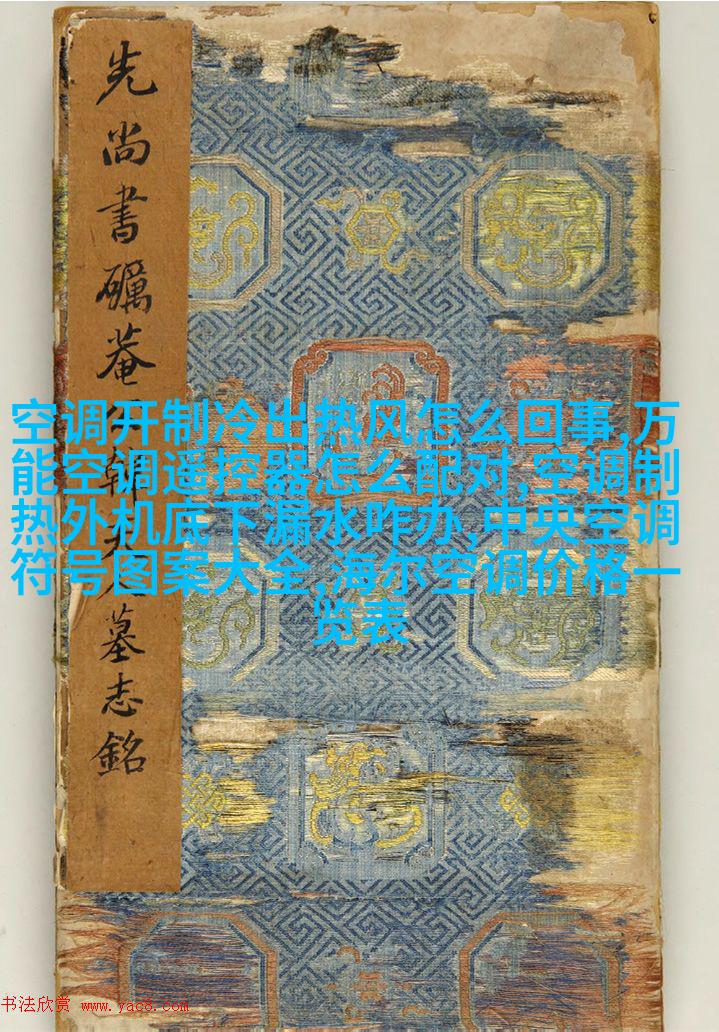 先尚書礪菴墓志銘
空调开制冷出热风怎么回事,万
能空调遥控器怎么配对,空调制
热外机底下漏水咋办,中央空调
符号图案大全,海尔空调价格一
览表
书法欣赏 www.yac8.com